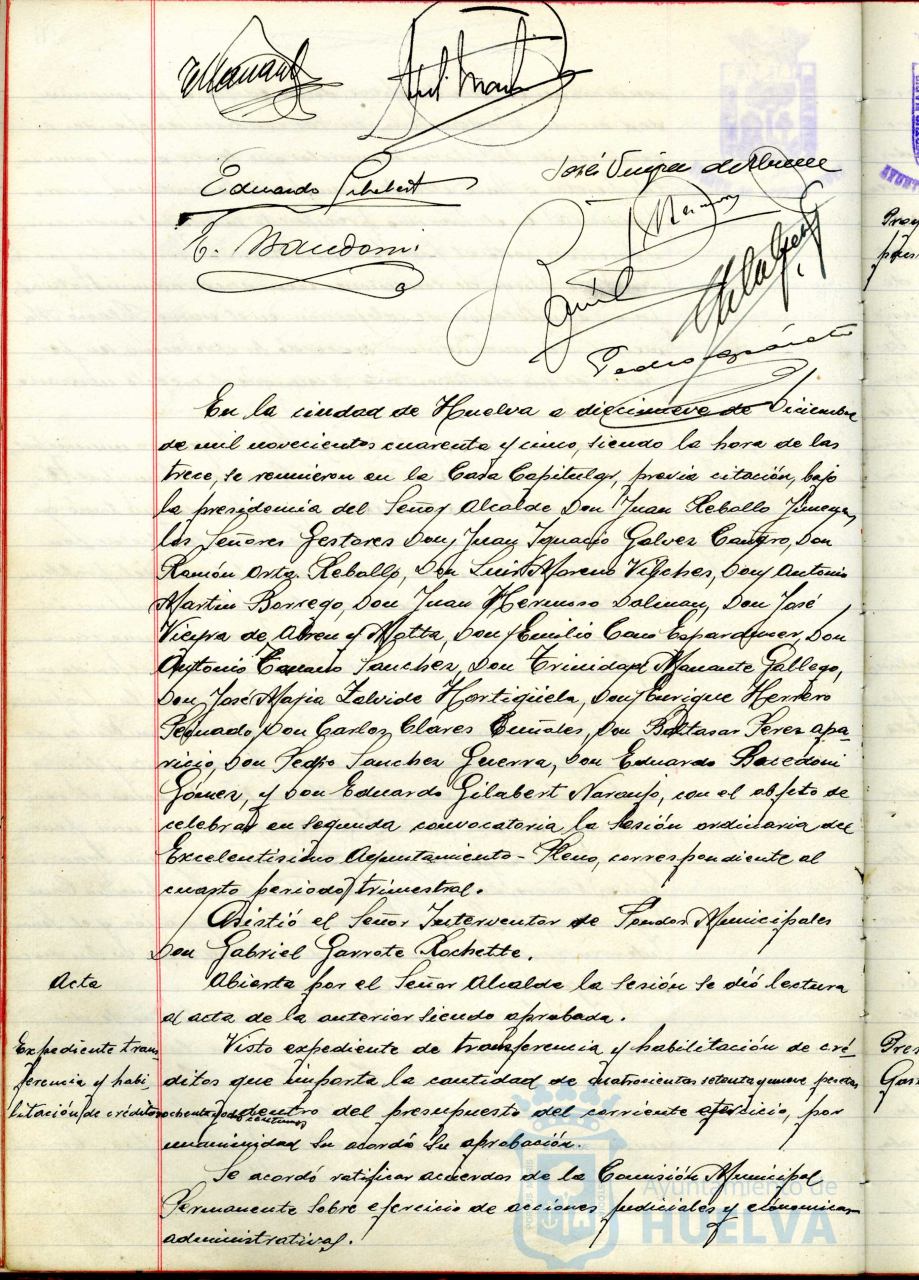 Eduardo Gilabert
José Vieyra de Abreu
En la ciudad de Huelva a diecinueve de Diciembre
de mil novecientos cuarenta y cinco, siendo la hora de las
trece, se reunieron en la Casa Capitular, previa citación, bajo
la presidencia del Señor Alcalde Don Juan Reballo Jimenez
los Señores Gestores Don Juan Ignacio Galvez Cañero, Don
Ramón Orta Reballo, Don Luis Moreno Vilches, Don Antonio
Martin Borrego, Don Juan Hermoso Dalman, Don José
Vieyra de Abreu y Motta, Don Emilio Cano Esparducer, Don
Antonio Cano Sanchez, Don Trinidad Manante Gallego,
Don José Maria Zalvide Hortigüela, Don Enrique Herrero
Peguado, Don Carlos Clares Buñales, Don Baltasar Perez apa-
ricio, Don Pedro Sanchez Guerra, Don Eduardo Bacedoni
Gómez, y Don Eduardo Gilabert Naranjo, con el objeto de
celebrar en segunda convocatoria la sesión ordinaria del
Excelentisimo Ayuntamiento-Pleno, correspondiente al
cuarto periodo trimestral.
Asistió el Señor Interventor de Fondos Municipales
Don Gabriel Garrote Rochette.
Acta
Abierta por el Señor Alcalde la sesión se dió lectura
al acta de la anterior siendo aprobada.
Expediente trans
ferencia y habi
litación de créditos
Visto expediente de transferencia y habilitación de cré-
ditos que importa la cantidad de cuatrosientas setenta y nueve pesetas
ochenta y dos centimos dentro del presupuesto del corriente ejercicio, por
unanimidad su acordó su aprobación.
Se acordó ratificar acuerdos de la Comisión Municipal
Permanente sobre ejercicio de acciones judiciales y ecónomicas
administrativas.
Ayuntamiento de
HUELVA